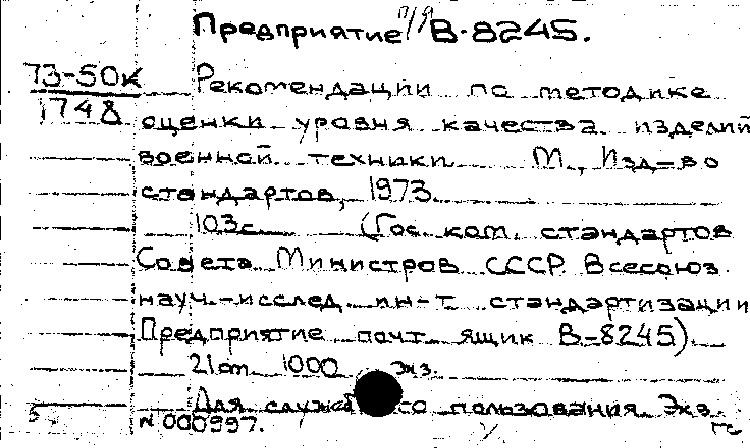 Предприятие п/я В-8245.
73-50к
1748
Рекомендации по методике
оценки уровня качества изделий
военной техники. М., Изд-во
стандартов, 1973.
103с. (Гос. ком. стандартов
Совета Министров СССР. Всесоюз.
науч.-исслед. ин-т стандартизации
Предприятие почт. ящик В-8245).
21см. 1000 экз.
Для служебного пользования. Экз.
№ 000997.